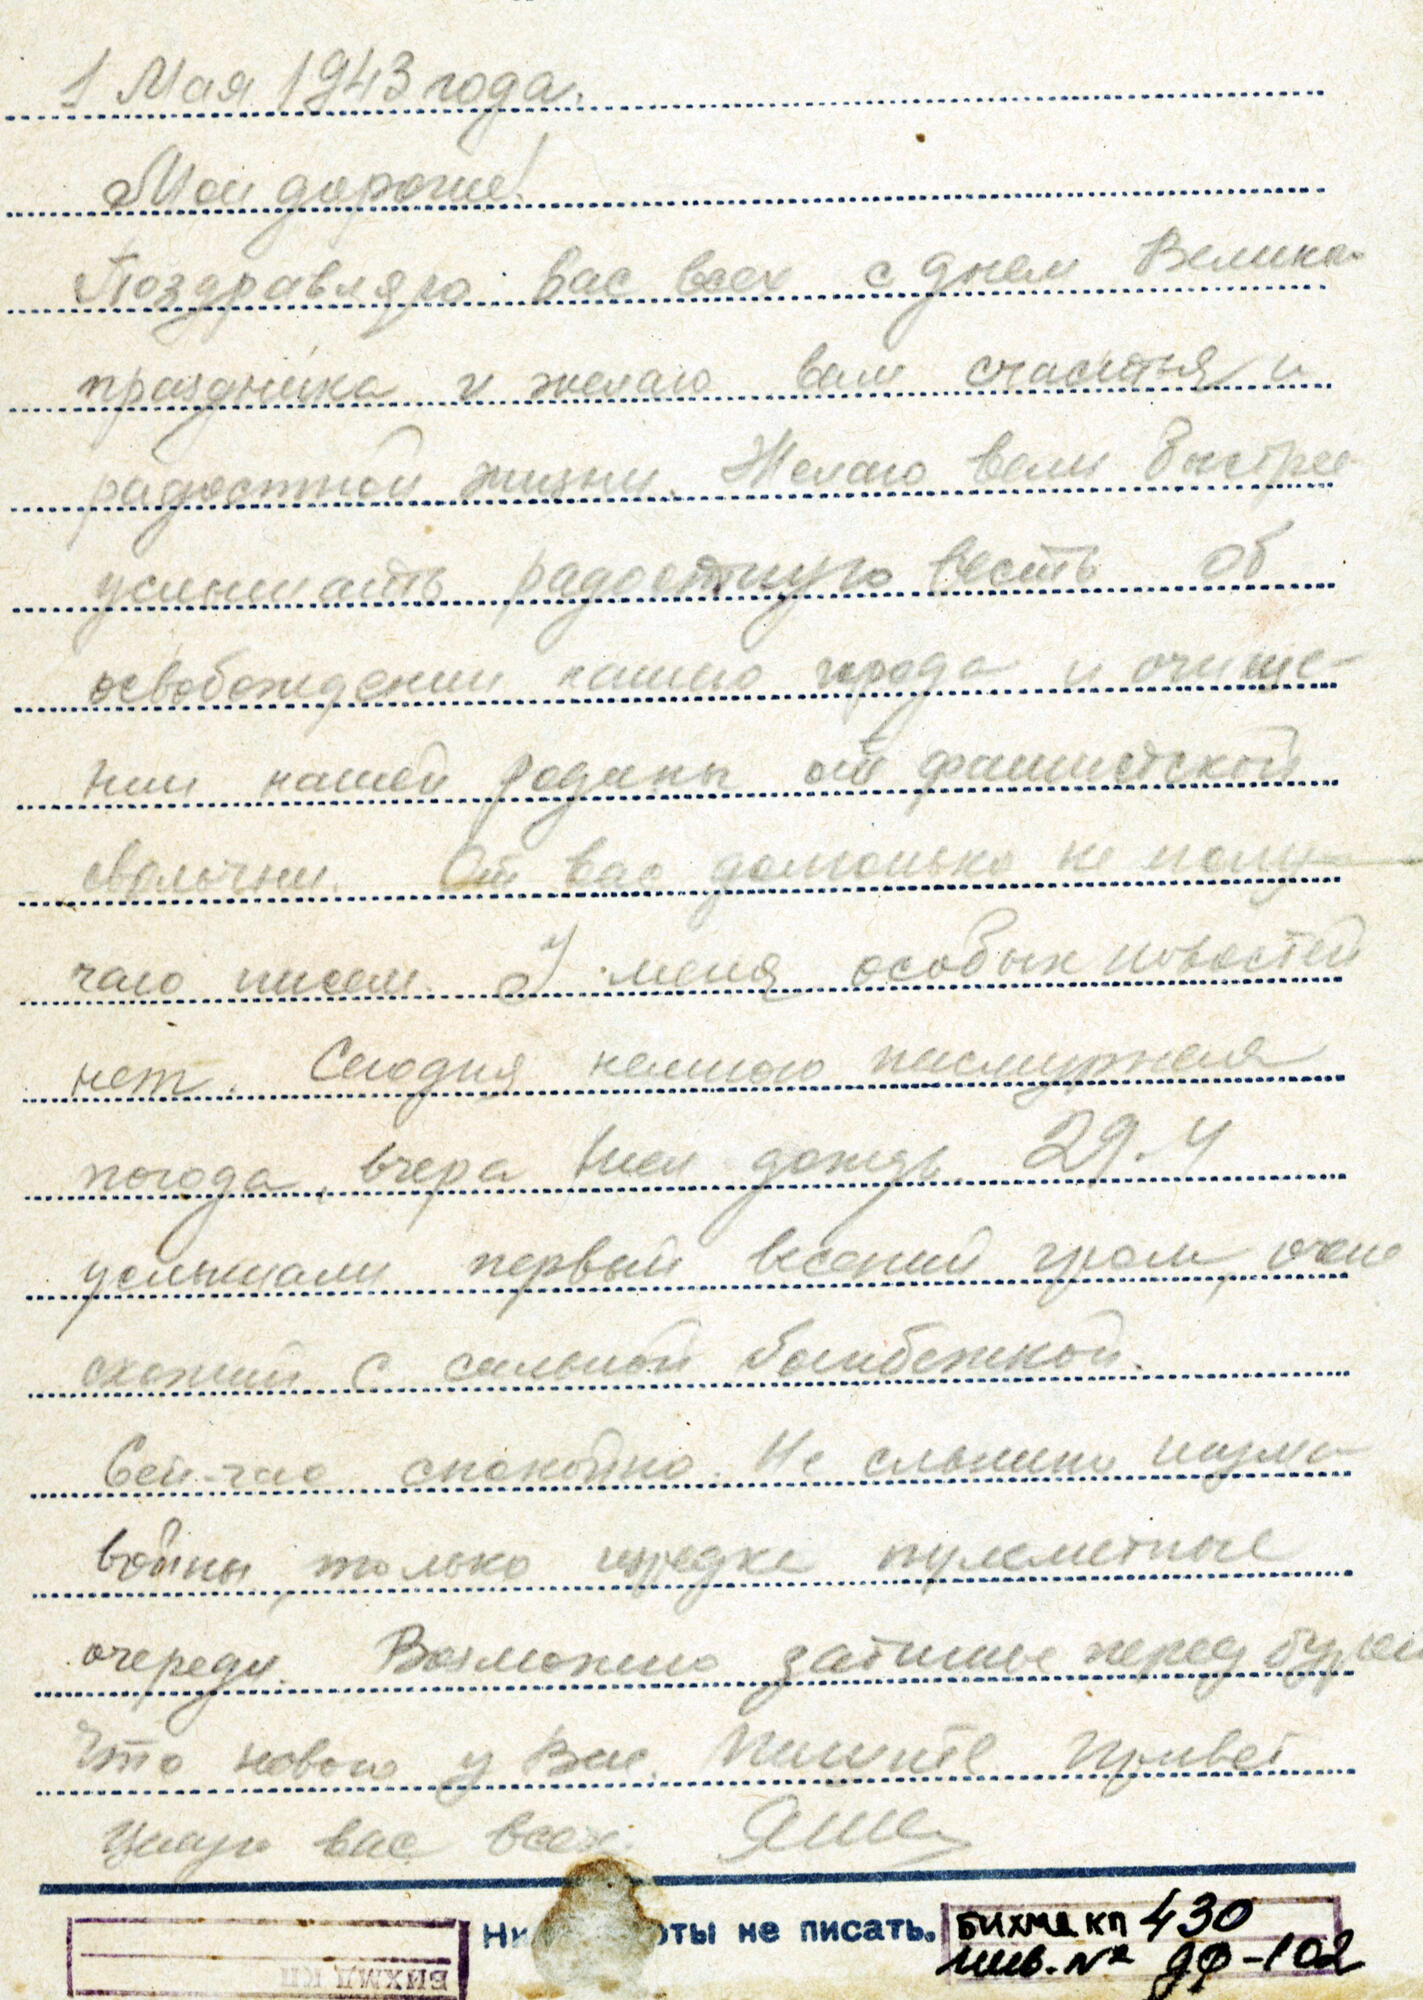 1 Мая 1943 года.
Мои дорогие!
Поздравляю вас всех с днем Велико-
праздника и желаю вам счастья и
радостной жизни. Желаю вам быстрее
услышать радостную весть об
освобождении нашего города и очище-
нии нашей родины от фашистской
сволочни. От вас долгонько не полу-
чаю писем. У меня особых новостей
нет. Сегодня немного пасмурная
погода, вчера шел дождь. 29.4
услышали первый весений гром, очень
схожий с сильной бомбежкой.
Сей-час спокойно. Не слышно шума
войны, только изредка пулеметные
очереди. Возможно затишье перед бурей
Что нового у Вас. Пишите Привет
Целую вас всех. Яша
не писать.
БИХМД КП 430
инв. № ДФ-102
БИХМД КП